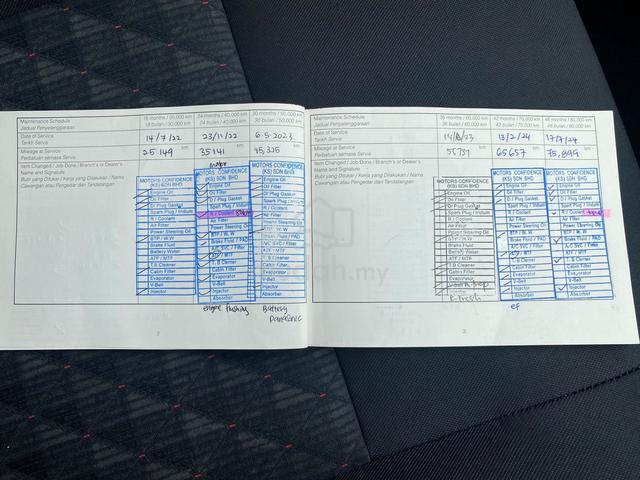 Maintenance Schedule
Jadual Penyelenggaraan
18 months / 30,000 km
18 bulan / 30,000 km
24 months / 40,000 km
24 bulan / 40,000 km
30 months / 50,000 km
30 bulan / 50,000 km
Date of Service
Tarikh Servis
14/7/22
23/11/22
6.5.2023
Mileage at Service
Perbatuan semasa Servis
25149 km
35141 km
45,325 km
Item Changed / Job Done / Branch's or Dealer's
Name and Signature
Butir yang Ditukar / Kerja yang Dilakukan / Nama
Cawangan atau Pengedar dan Tandatangan
MOTORS CONFIDENCE
(KS) SDN BHD
Engine Oil
Oil Filter
D/ Plug Gasket
Spark Plug / Iridium
R / Coolant
Air Filter
Power Steering Oil
BTP / W.W
Brake Fluid
Battery Water
ATF / MTF
T.B Cleaner
Cabin Filter
Evaporator
V-Belt
Injector
MOTORS CONFIDENCE
(KS) SDN BHD
Engine Oil
Oil Filter
D / Plug Gasket
Spark Plug / Iridium
R / Coolant
Air Filter
Power Steering Oil
BTP / W. W
Brake Fluid / PAD
A/C SVC / Filter
ATF / MTF
T.B Clemer
Cabin Filter
Evaporator
V-Belt
Injector
Absorber
engine flushing
MOTORS CONFIDENCE
(KS) SDN BHD
Engine Oil
Oil Filter
D / Plug Gasket
R / Coolant
Air Filter
Power Steering Oil
BTP / W. W
A/C SVC / Filter
ATF / MTF
T.B Clemer
Cabin Filter
Evaporator
V-Belt
Injector
Absorber
Battery
panasonic
2
Maintenance Schedule
Jadual Penyelenggaraan
36 months / 60,000 km
36 bulan / 60,000 km
42 months / 70,000 km
42 bulan / 70,000 km
48 months / 80,000 km
48 bulan / 80,000 km
Date of Service
Tarikh Servis
13/2/24
17/7/24
Mileage at Service
Perbatuan semasa Servis
65657 km
75,899 km
Item Changed / Job Done / Branch's or Dealer's
Name and Signature
Butir yang Ditukar / Kerja yang Dilakukan / Nama
Cawangan atau Pengedar dan Tandatangan
MOTORS CONFIDENCE
(KS) SDN BHD
Engine Oil
Oil Filter
D/ Plug Gasket
Spark Plug / Iridium
R / Coolant
Air Filter
Power Steering Oil
BTP / W.W
Brake Fluid
Battery Water
ATF / MTF
T.B Cleaner
Cabin Filter
Evaporator
MOTORS CONFIDENCE
(KS) SDN BHD
Engine Oil
Oil Filter
D / Plug Gasket
Spark Plug / Iridium
R / Coolant
Air Filter
Power Steering Oil
BTP / W. W
Brake Fluid / PAD
A/C SVC / Filter
ATF / MTF
T.B Clemer
Cabin Filter
Evaporator
V-Belt
Injector
Absorber
ef
MOTORS CONFIDENCE
(KS) SDN BHD
Engine Oil
Oil Filter
D / Plug Gasket
Spark Plug / Iridium
R / Coolant
Air Filter
Power Steering Oil
BTP / W. W
Brake Fluid / PAD
A/C SVC / Filter
ATF / MTF
T.B Clemer
Cabin Filter
Evaporator
V-Belt
Injector
Absorber
3
.my